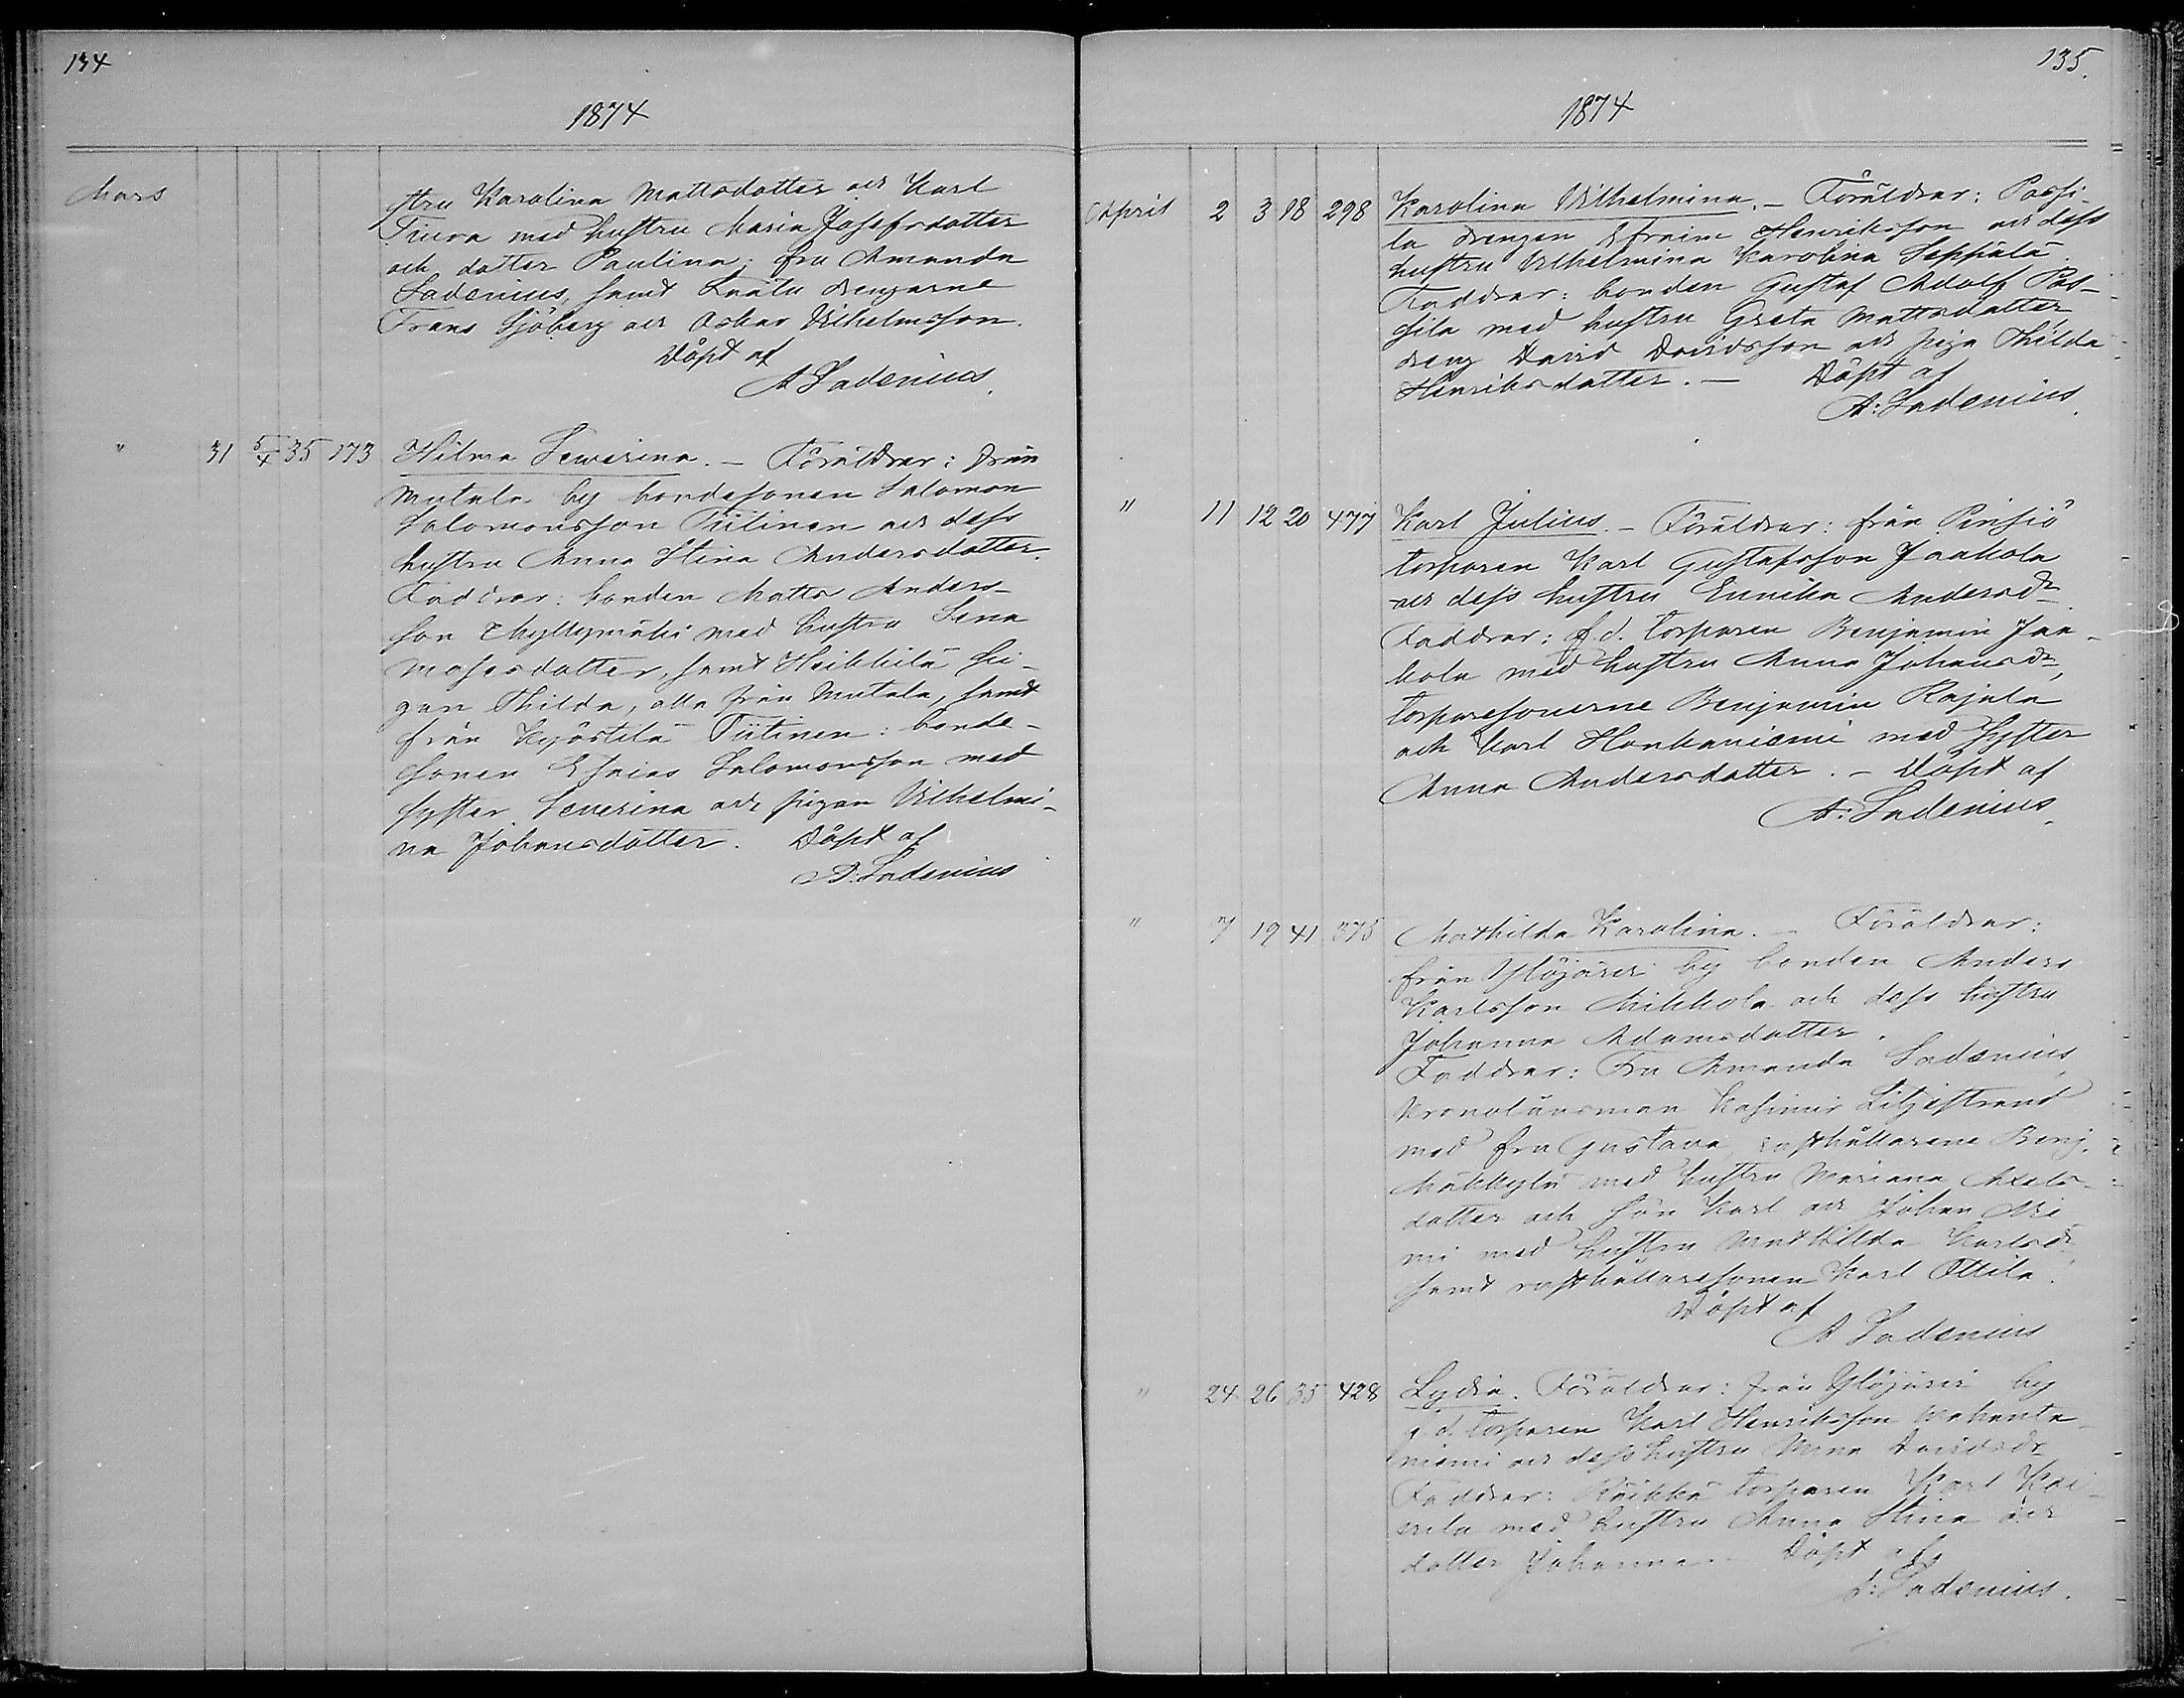 134
1874
Mars
stru Karolina Mattsdotter och Karl
med hustru Maria Josefsdotter
och dotter Paulina; fru Amanda
Ladenius, samt drengarne
Frans Sjöberg och Oskar Vilhelmsson.
Döpt af
A Ladenius.
" 31 5/4 35 173 Hilma Sewerina. — Föräldrar: från
Mutala by bondesonen Salomon
Salomonsson Tiitinen och dess
hustru Anna Stina Andersdotter.
Faddrar: bonden Matts Anders-
son Myllymäki med hustru Lena
Mosesdotter, samt Heikkilä pi-
gan Thilda, alla från Mutala, samt
från Kyöstilä Tiitinen: bonde-
sonen Esaias Salomonsson med
syster Severina och pigan Vilhelmi-
na Johansdotter. Döpt af
A: Ladenius
135.
1874
April 2 3 18 298 Karolina Vilhelmina. — Föräldrar: Passi-
la drengen Efraim Henriksson och dess
hustru Vilhelmina Karolina Seppälä.
Faddrar: bonden Gustaf Adolf Pas-
sila med hustru Greta Mattsdotter
dreng David Davidsson och piga Thilda
Henriksdotter. — Döpt af
A: Ladenius.
" 11 12 20 477 Karl Julius. — Föräldrar: från Pinsiö
torparen Karl Gustafsson Jaakola
och dess hustru Eunika Andersdr
Faddrar: f.d. torparen Benjamin Jaa-
kola med hustru Anna Johansdr,
torparesönerne Benjamin Rajala
och Karl Honkaniemi med syster
Anna Andersdotter. — Döpt af
A: Ladenius.
" 7 19 41 375 Mathilda Karolina. — Föräldrar:
från Ylöjärvi by bonden Anders
Karlsson Mikkola och dess hustru
Johanna Adamsdotter.
Faddrar: Fru Amanda Ladenius,
Kronolänsman Kasimir Liljestrand
med fru Gustava, rusthållarene Benj.
Mäkkylä med hustru Mariana Axels-
dotter och son Karl och Johan
med hustru Mathilda Karlsdr
samt rusthållaresonen Karl Ottila.
Döpt af
A Ladenius
" 24 26 35 428 Lydia. Föräldrar: från Ylöjärvi by
f.d. torparen Karl Henriksson
niemi och dess hustru Davidsdr
Faddrar: Räikkä torparen Karl
med hustru Anna Stina och
dotter Johanna. — Döpt af
A: Ladenius.